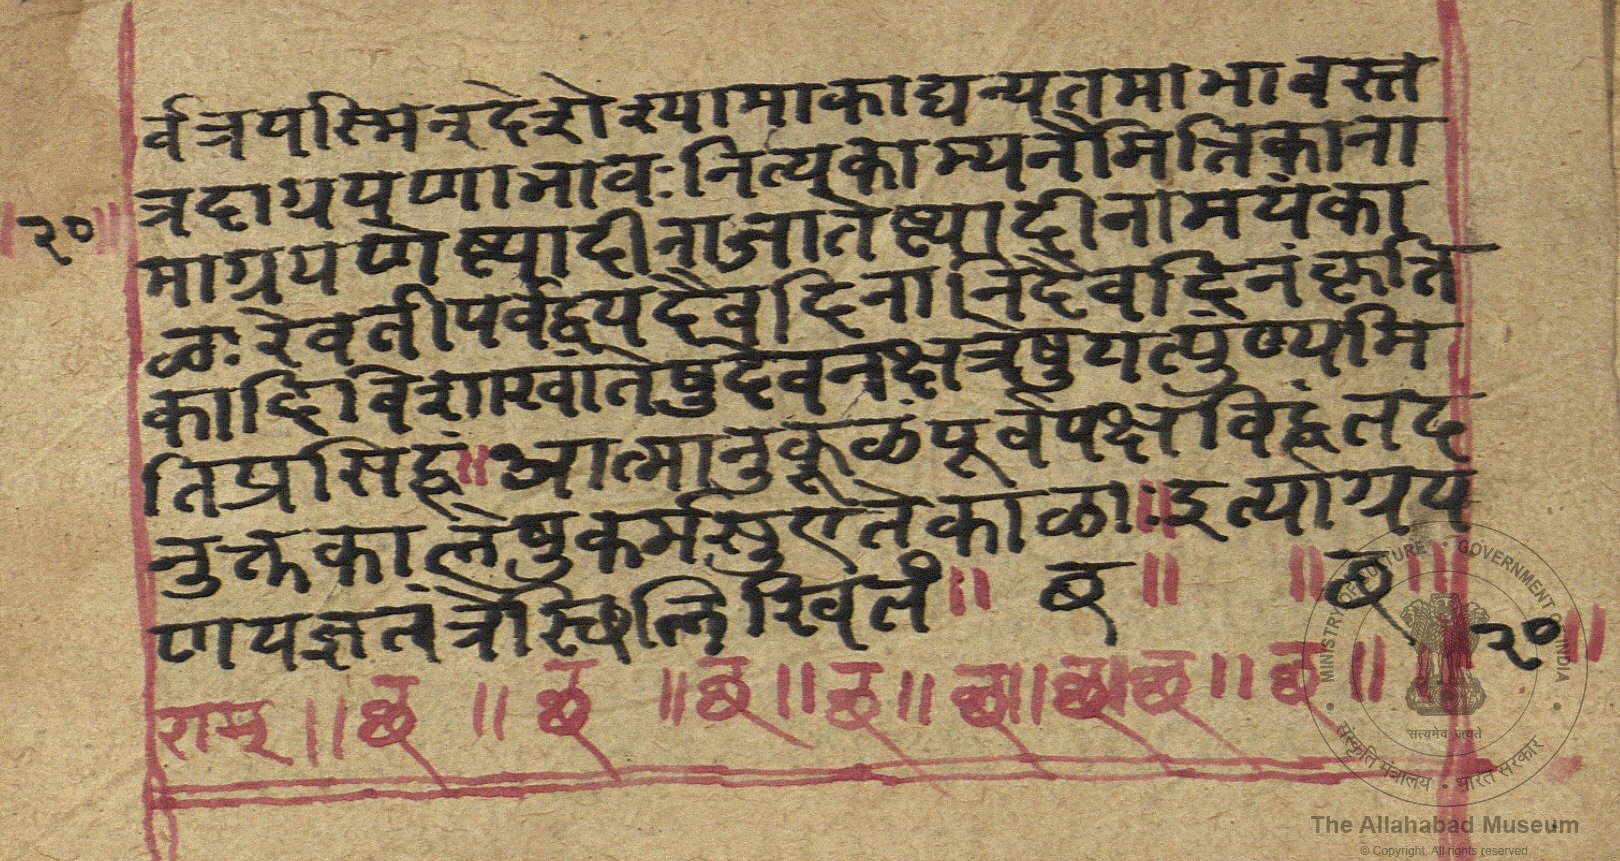 र्वत्रयस्मिन्देशेश्यामाकाद्यन्यतमाभावस्त
त्रदाग्रयणाभावः नित्यकाम्यनैमित्तिकाना
॥२०॥
माग्रयणेष्ट्यादीनाजातेष्ट्यादीनामयंका
ळः रेवतीपर्वद्वयदैवदिनानिदैवदिनंकृत्ति
कादिविशाखांतेषुदेवनक्षत्रेषुयत्पुण्यमि
तिप्रसिद्धं॥आत्मानुकूळंपूर्वपक्षविद्धंतद
नुक्तकालेषुकर्मसुएतेकाळाः॥इत्याग्रय
णयज्ञतंत्रोस्थलिखितं॥ छ ॥ ॥ छ ॥
२०॥
राम ॥ छ ॥ छ ॥ छ ॥ छ ॥ छ ॥ छ छ ॥ छ ॥
MINISTRY OF CULTURE GOVERNMENT OF INDIA
सत्यमेव जयते
संस्कृति मंत्रालय भारत सरकार
The Allahabad Museum
© Copyright, All rights reserved.